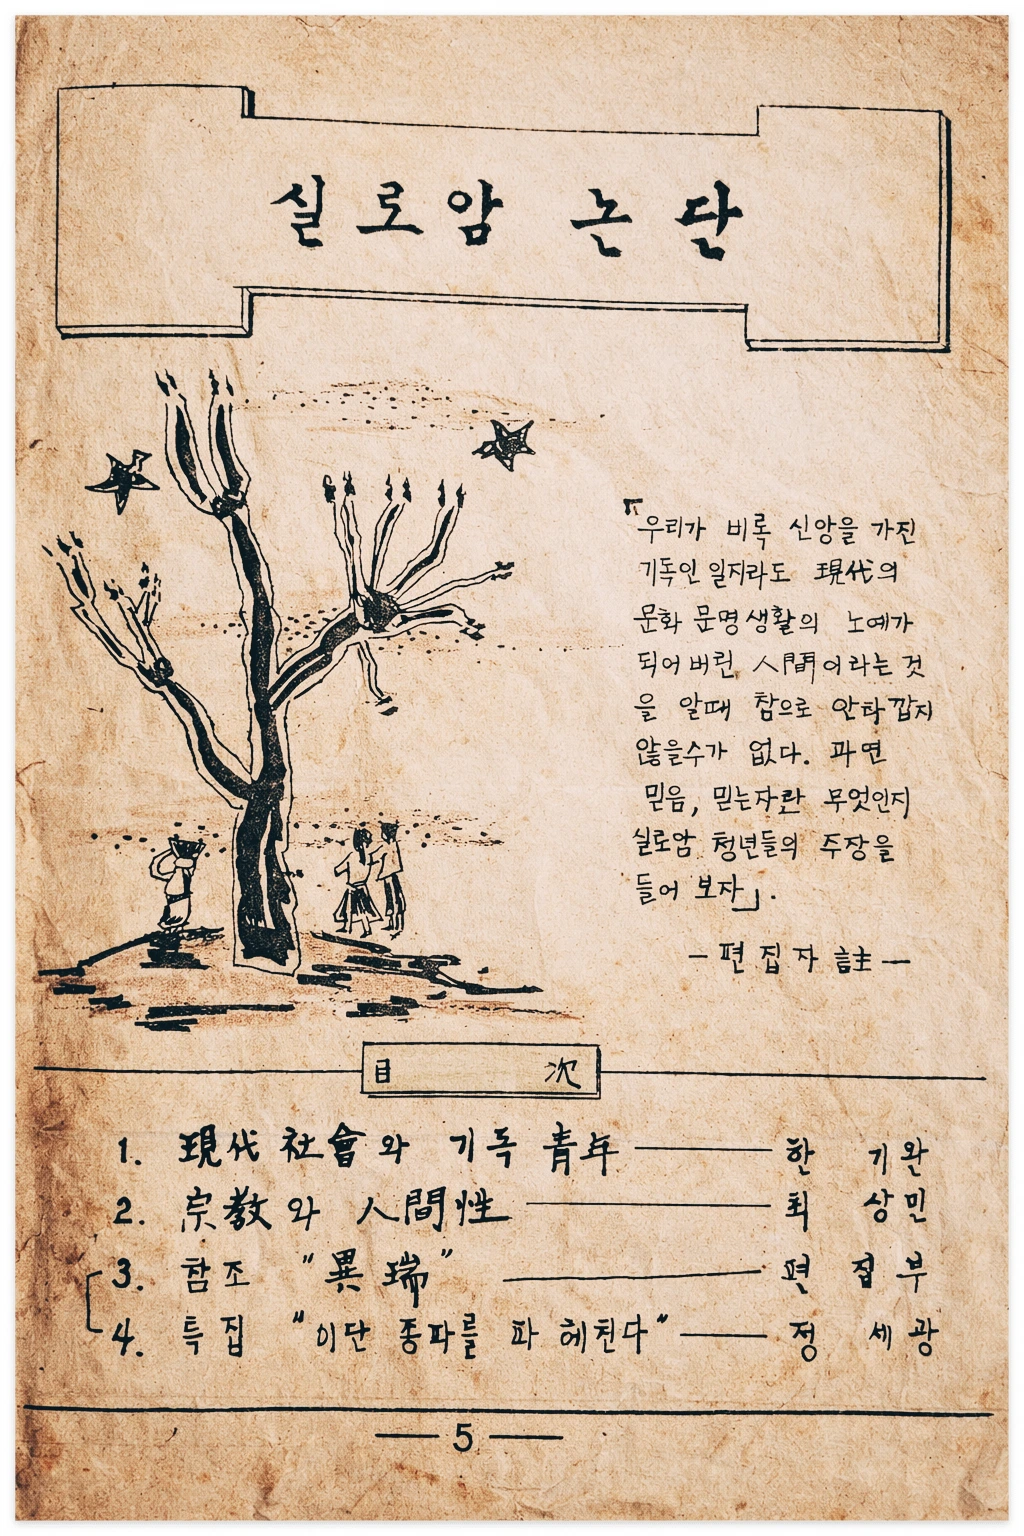 실로암 논단
「우리가 비록 신앙을 가진
기독인 일지라도 現代의
문화 문명생활의 노예가
되어버린 人間이라는 것
을 알때 참으로 안타깝지
않을수가 없다. 과연
믿음, 믿는자란 무엇인지
실로암 청년들의 주장을
들어 보자」.
-편집자 註-
目 次
1. 現代 社會와 기독 青年 — 한 기완
2. 宗教와 人間性 — 최 상민
3. 참조 "異瑞" — 편집부
4. 특집 "이단 종파를 파헤친다" — 정 세광
— 5 —